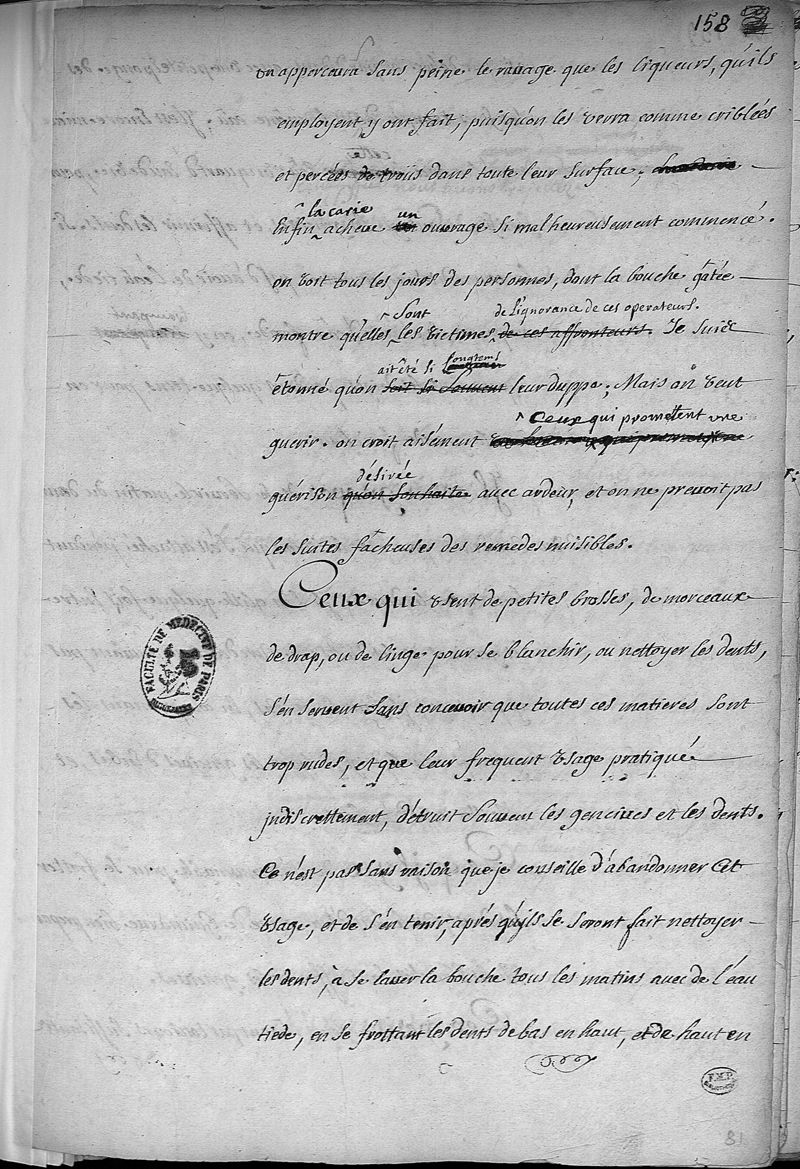 158
on appercevra sans peine le ravage que les liqueurs, qu'ils
employent y ont fait, puisqu'on les verra comme criblées
et percées de troüs dans toute leur surface;
Enfin ^ la carie acheve un ouvrage si mal heureusement commencé.
on voit tous les jours des personnes, dont la bouche gâtée
montre qu'elles ^ sont les victimes ^ de l'ignorance de ces operateurs. de ces affronteurs. Je suis
étonné qu'on ait été si longtems soit si souvent leur duppe; Mais on veut
guerir. on croit aisément ^ Ceux qui promettent une
guérison désirée qu'on souhaite avec ardeur, et on ne prevoit pas
les suites facheuses des remedes nuisibles.
Ceux qui usent de petites brosses, de morceaux
de drap, ou de linge pour se blanchir, ou nettoyer les dents,
s'en servent sans concevoir que toutes ces matieres sont
trop rudes, et que leur frequent usage pratiqué
jndiscrettement, détruit souvent les gencives et les dents.
Ce n'est pas sans raison que je conseille d'abandonner cet
usage, et de s'en tenir, aprés qu'ils se seront fait nettoyer
les dents, à se laver la bouche tous les matins avec de l'eau
tiede, en se frottant les dents de bas en haut, et de haut en
FACULTÉ DE MEDECINE DE PARIS
F.M.P.
81